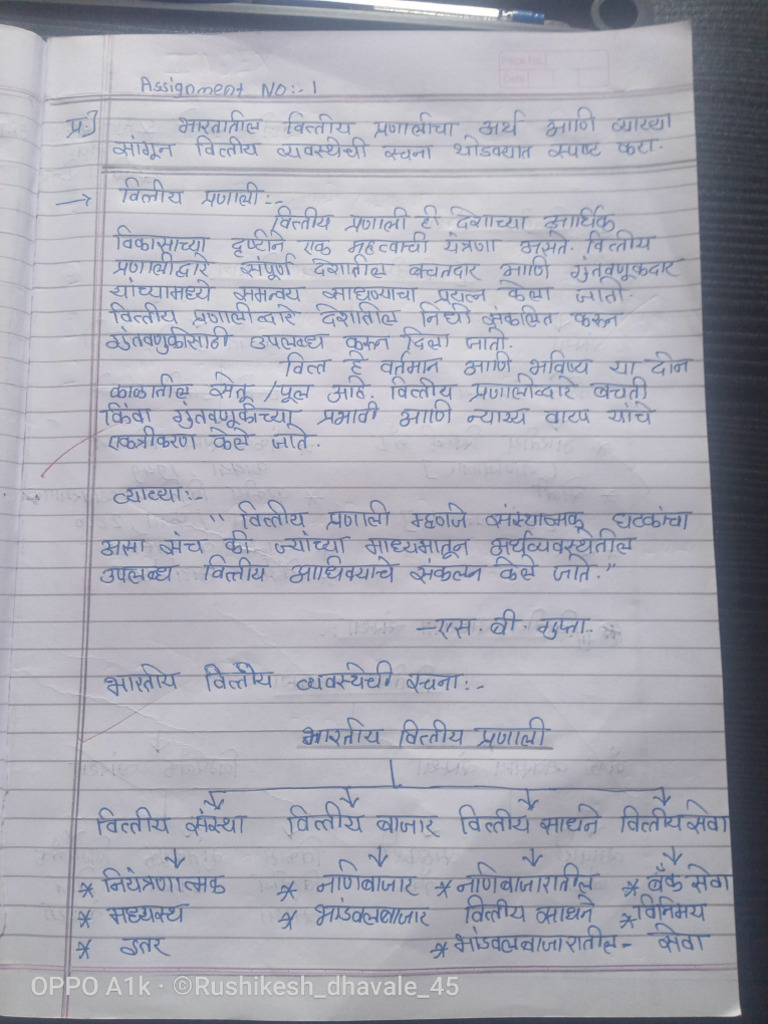 Page No.
Date
Assignment No:- 1
प्र.1 भारतातील वित्तीय प्रणालीचा अर्थ आणि व्याख्या
सांगून वित्तीय व्यवस्थेची रचना थोडक्यात स्पष्ट करा.
→ वित्तीय प्रणाली:-
वित्तीय प्रणाली ही देशाच्या आर्थिक
विकासाच्या दृष्टीने एक महत्वाची यंत्रणा असते. वित्तीय
प्रणालीद्वारे संपूर्ण देशातील बचतदार आणि गुंतवणूकदार
यांच्यामध्ये समन्वय साधण्याचा प्रयत्न केला जातो.
वित्तीय प्रणालीव्दारे देशातील निधी संकलित करून
गुंतवणुकीसाठी उपलब्ध करून दिला जातो.
वित्त हे वर्तमान आणि भविष्य या दोन
काळातील सेतू / पूल आहे. वित्तीय प्रणालीव्दारे बचती
किंवा गुंतवणूकीच्या प्रभावी आणि न्याय्य वाटप यांचे
एकत्रीकरण केले जाते.
व्याख्या:-
" वित्तीय प्रणाली म्हणजे संस्थात्मक घटकांचा
असा संच की ज्यांच्या माध्यमातून अर्थव्यवस्थेतील
उपलब्ध वित्तीय आधिक्याचे संकलन केले जाते."
- एस. बी. गुप्ता.
भारतीय वित्तीय व्यवस्थेची रचना:-
भारतीय वित्तीय प्रणाली
वित्तीय संस्था वित्तीय बाजार वित्तीय साधने वित्तीय सेवा
* नियंत्रणात्मक * नाणेबाजार * नाणेबाजारातील * बँक सेवा
* मध्यस्थ * भांडवलबाजार वित्तीय साधने * विनिमय
* इतर * भांडवलबाजारातील - सेवा
OPPO A1k · ©Rushikesh_dhavale_45